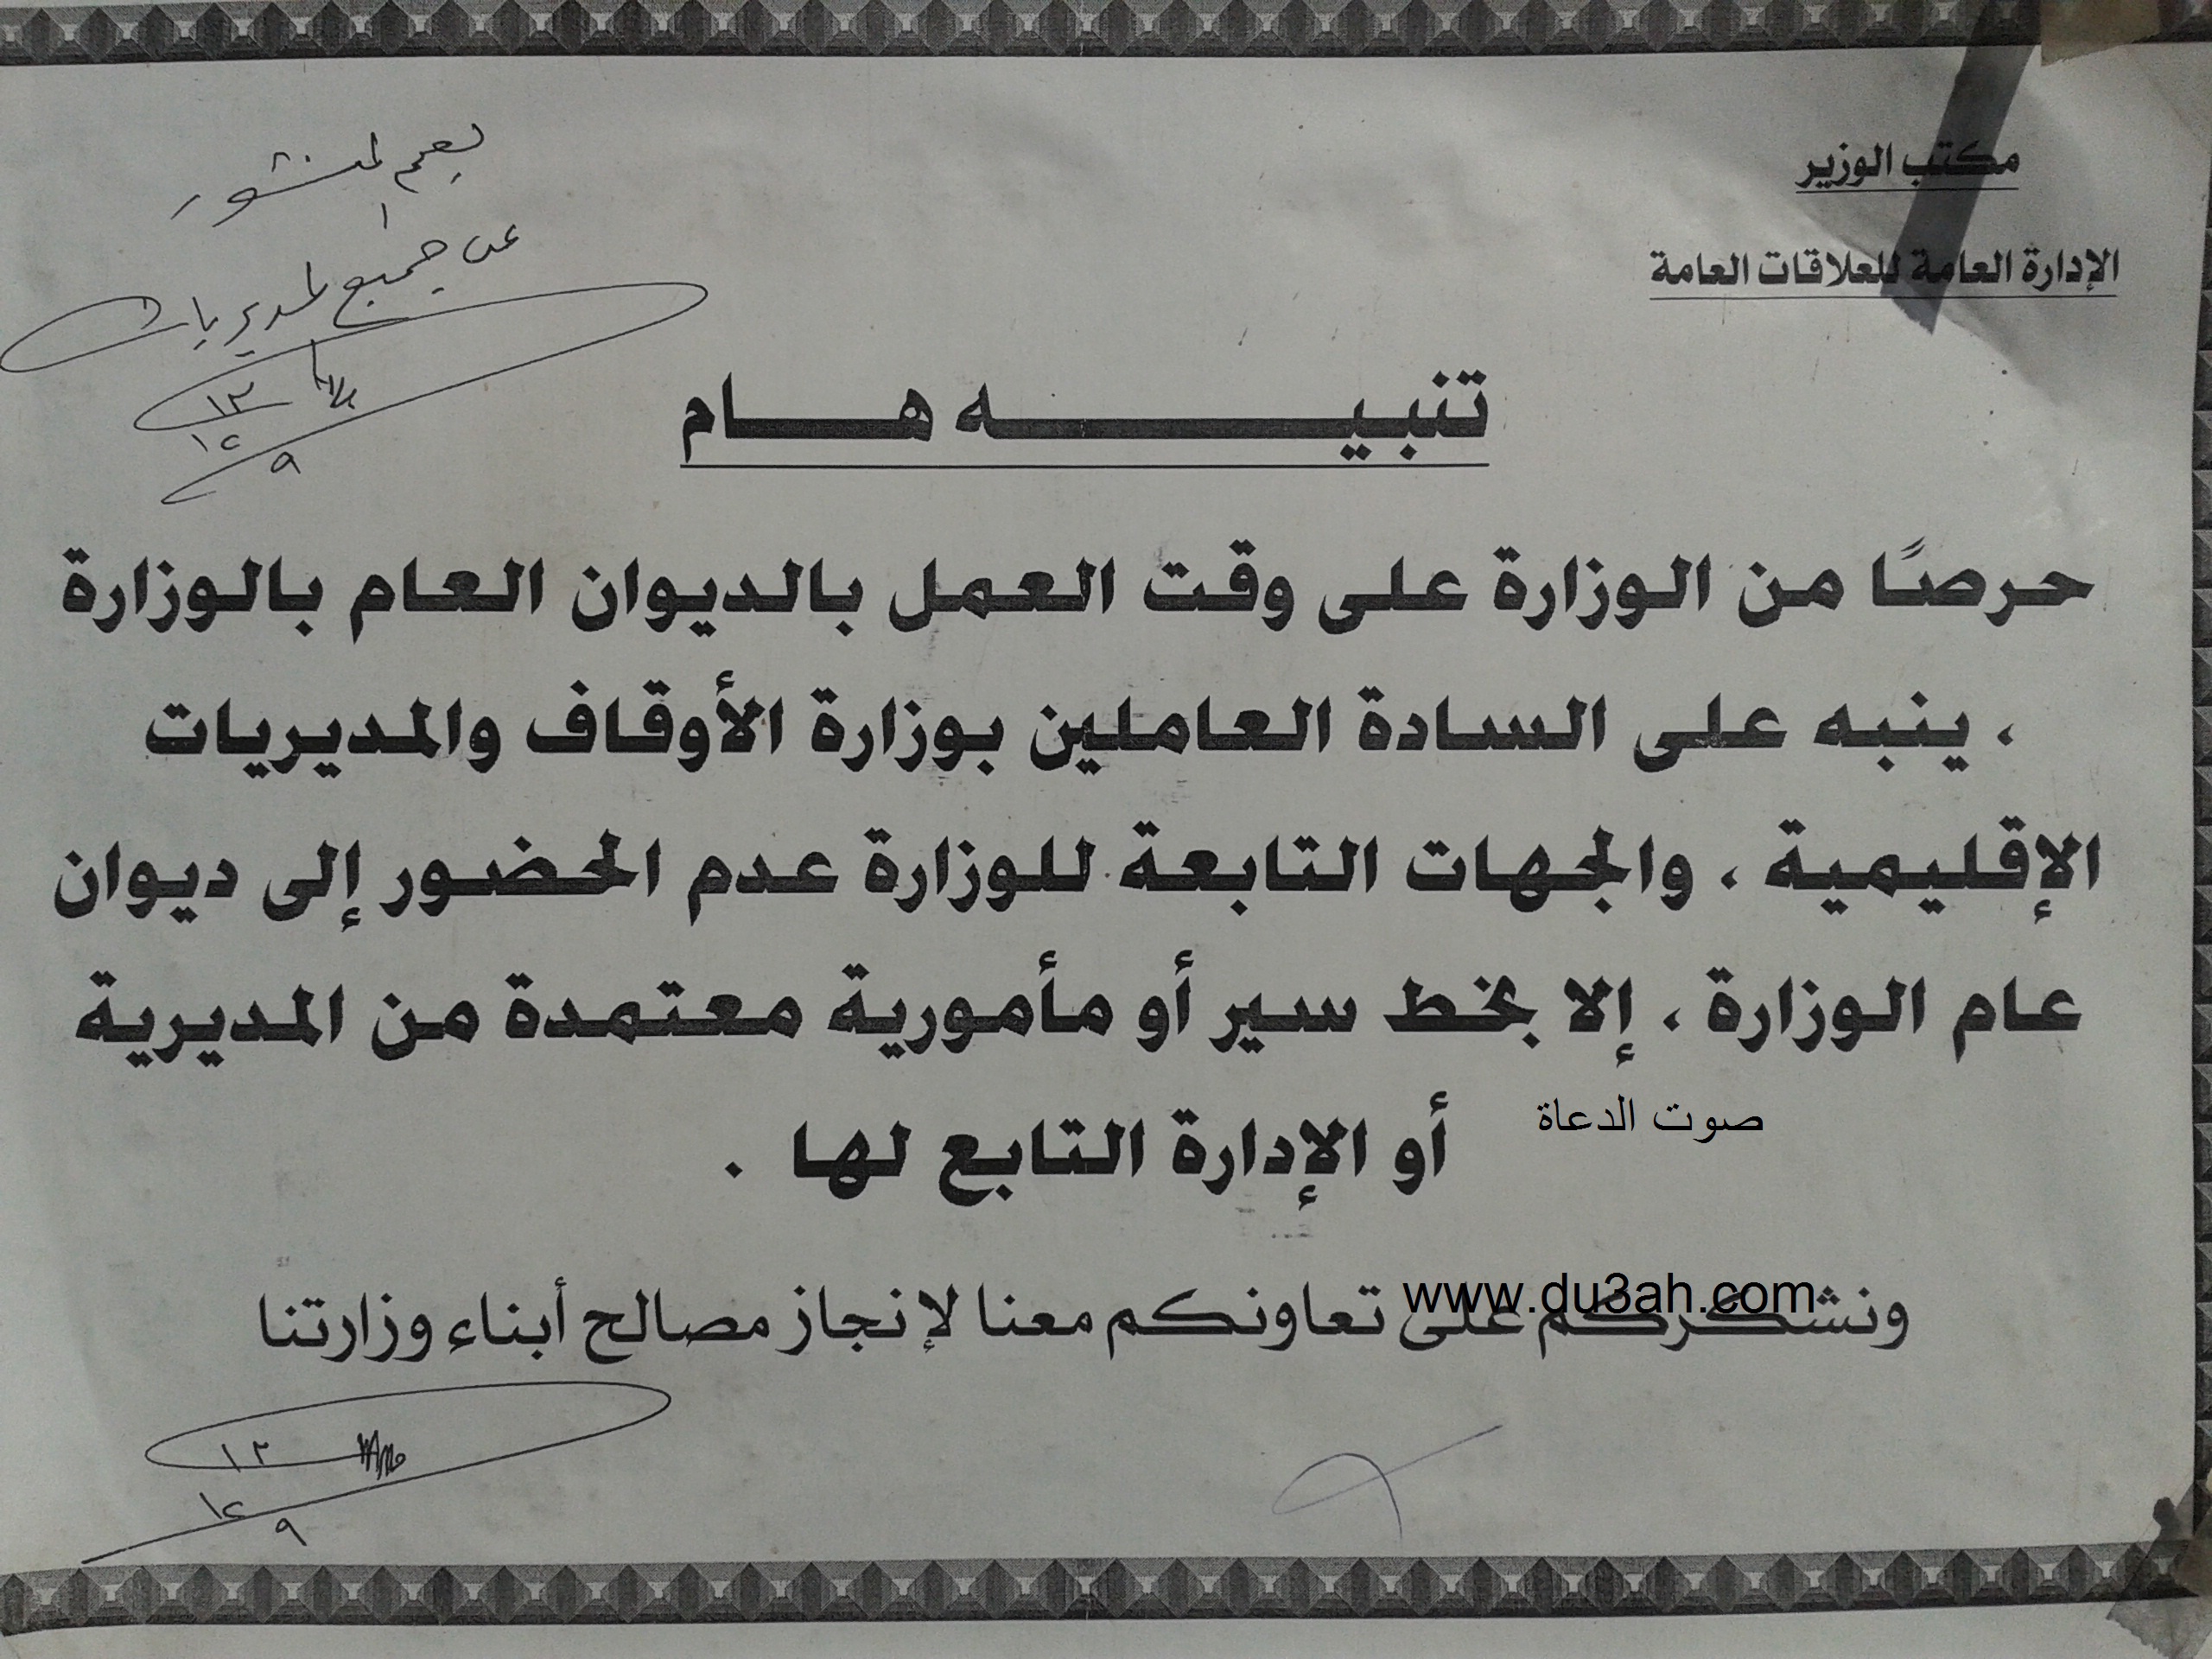 مكتب الوزير
الإدارة العامة للعلاقات العامة
يعمم المنشور
على جميع المديريات
١٢
٩
تنبيـــــــه هـــــام
حرصًا من الوزارة على وقت العمل بالديوان العام بالوزارة
، ينبه على السادة العاملين بوزارة الأوقاف والمديريات
الإقليمية ، والجهات التابعة للوزارة عدم الحضور إلى ديوان
عام الوزارة ، إلا بخط سير أو مأمورية معتمدة من المديرية
صوت الدعاة
أو الإدارة التابع لها .
www.du3ah.com
ونشكركم على تعاونكم معنا لإنجاز مصالح أبناء وزارتنا
١٢
٩